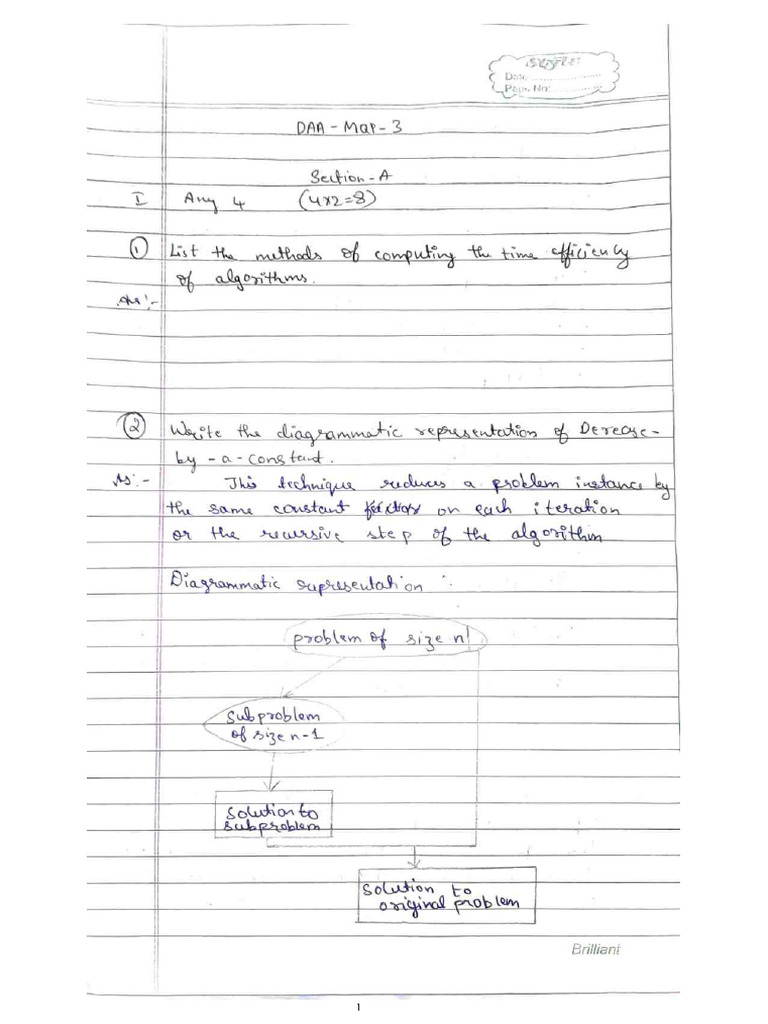 Date
Page No:
DAA - MQP - 3
Section - A
I Any 4 (4x2=8)
① List the methods of computing the time efficiency
of algorithms.
Ans:-
② Write the diagrammatic representation of Derease-
by - a - constant.
As:- This technique reduces a problem instance by
the same constant factor on each iteration
or the recursive step of the algorithm
Diagrammatic representation :
problem of size n
Subproblem
of size n-1
Solution to
subproblem
Solution to
original problem
Brilliant
1